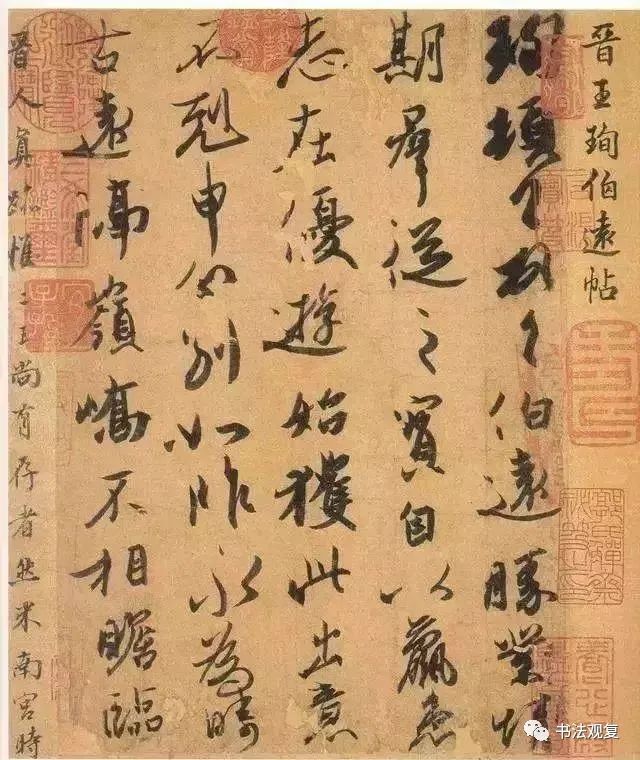 晋王珣伯遠帖
珣頓首頓首伯遠勝業情
期羣從之寳自以羸患
志在優遊始獲此出意
不剋申分别如昨永為疇
古遠隔嶺嶠不相瞻臨
晋人真蹟惟二王尚有存者然米南宫時
书法观复